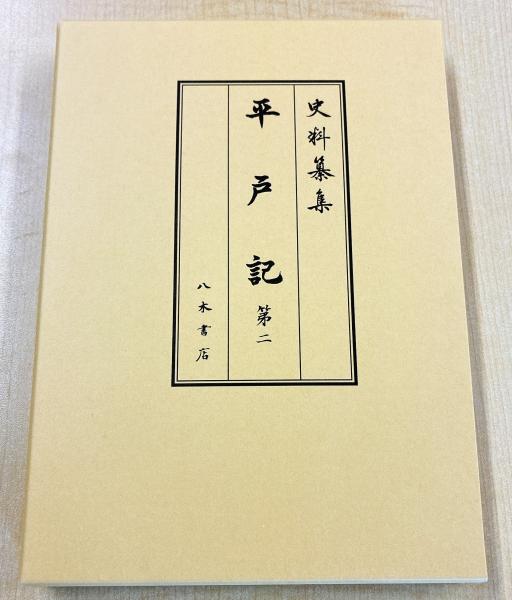 史料纂集
平戸記 第二
八木書店